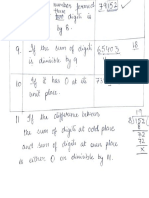 number formed 79152
from
last digit is
by 8.
9. If the sum of digits 65403 18
is divisible by 9
10. If it has 0 at its
unit place.
11. If the difference between
the sum of digits at odd place
and sum of digits at even place
is either 0 or divisible by 11.
19
8)152
8
72
72
x